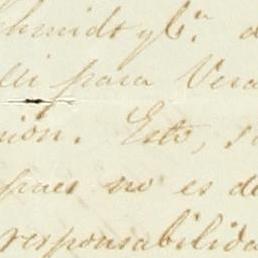 chmidt y C.ª d
lli para Vera
nión. Esto, s
pues no es de
responsabilida